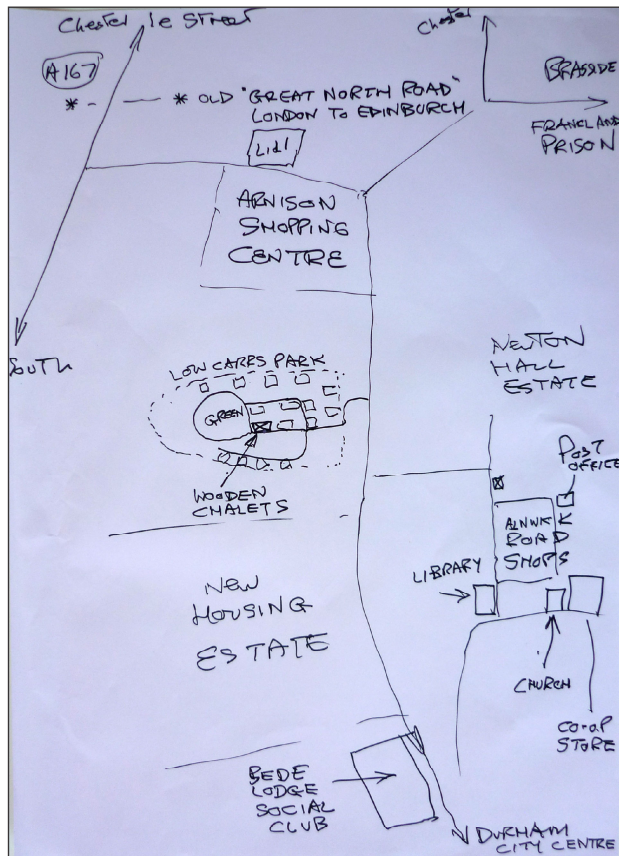 Chester le Street
A167
* - — * OLD "GREAT NORTH ROAD"
LONDON TO EDINBURGH
Chester
BRASSIDE
FRANCLAND
PRISON
Lidl
ARNISON
SHOPPING
CENTRE
SOUTH
LOW CARRS PARK
GREEN
WOODEN
CHALETS
NEWTON
HALL
ESTATE
POST
OFFICE
ALNWICK
ROAD
SHOPS
LIBRARY
NEW
HOUSING
ESTATE
CHURCH
CO-OP
STORE
BEDE
LODGE
SOCIAL
CLUB
DURHAM
CITY CENTRE